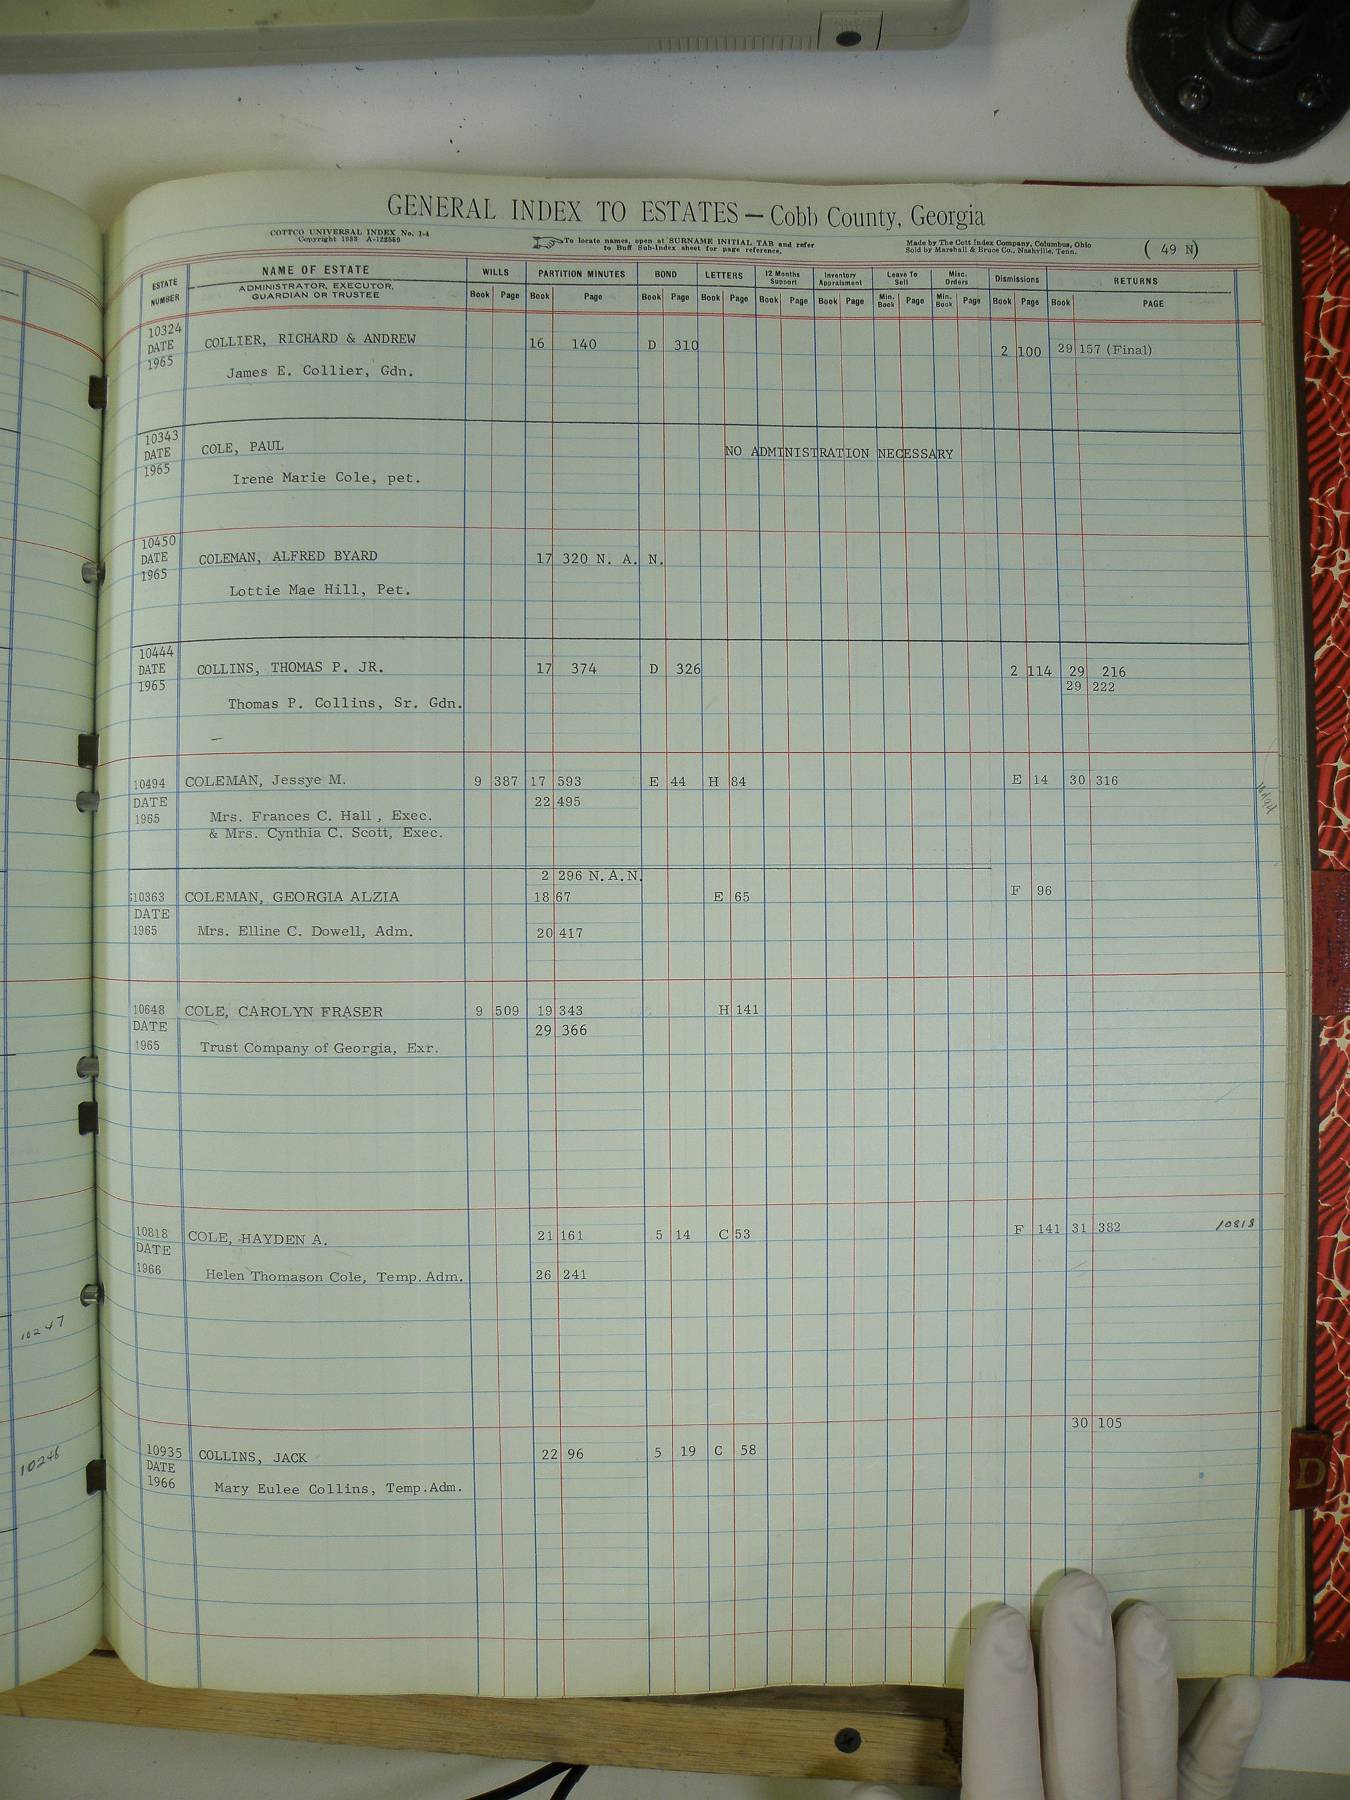 GENERAL INDEX TO ESTATES — Cobb County, Georgia
COTTCO UNIVERSAL INDEX No. 1-4
Copyright 1933 A-122559
To locate names, open at SURNAME INITIAL TAB and refer
to Buff Sub-Index sheet for page reference.
Made by The Cott Index Company, Columbus, Ohio
Sold by Marshall & Bruce Co., Nashville, Tenn.
( 49 N)
ESTATE NUMBER
NAME OF ESTATE
ADMINISTRATOR, EXECUTOR, GUARDIAN OR TRUSTEE
WILLS PARTITION MINUTES BOND LETTERS 12 Months Support Inventory Appraisment Leave To Sell Misc. Orders Dismissions RETURNS
Book Page Book Page Book Page Book Page Book Page Book Page Min. Book Page Min. Book Page Book Page Book PAGE
10324
DATE COLLIER, RICHARD & ANDREW 16 140 D 310 2 100 29 157 (Final)
1965
James E. Collier, Gdn.
10343
DATE COLE, PAUL NO ADMINISTRATION NECESSARY
1965
Irene Marie Cole, pet.
10450
DATE COLEMAN, ALFRED BYARD 17 320 N. A. N.
1965
Lottie Mae Hill, Pet.
10444
DATE COLLINS, THOMAS P. JR. 17 374 D 326 2 114 29 216
1965 29 222
Thomas P. Collins, Sr. Gdn.
10494 COLEMAN, Jessye M. 9 387 17 593 E 44 H 84 E 14 30 316
DATE 22 495
1965 Mrs. Frances C. Hall , Exec.
& Mrs. Cynthia C. Scott, Exec.
2 296 N.A.N.
10363 COLEMAN, GEORGIA ALZIA 18 67 E 65 F 96
DATE
1965 Mrs. Elline C. Dowell, Adm. 20 417
10648 COLE, CAROLYN FRASER 9 509 19 343 H 141
DATE 29 366
1965 Trust Company of Georgia, Exr.
10818 COLE, HAYDEN A. 21 161 5 14 C 53 F 141 31 382 10818
DATE
1966 Helen Thomason Cole, Temp. Adm. 26 241
10247
30 105
10935 COLLINS, JACK 22 96 5 19 C 58
DATE
1966 Mary Eulee Collins, Temp.Adm.
10248
D